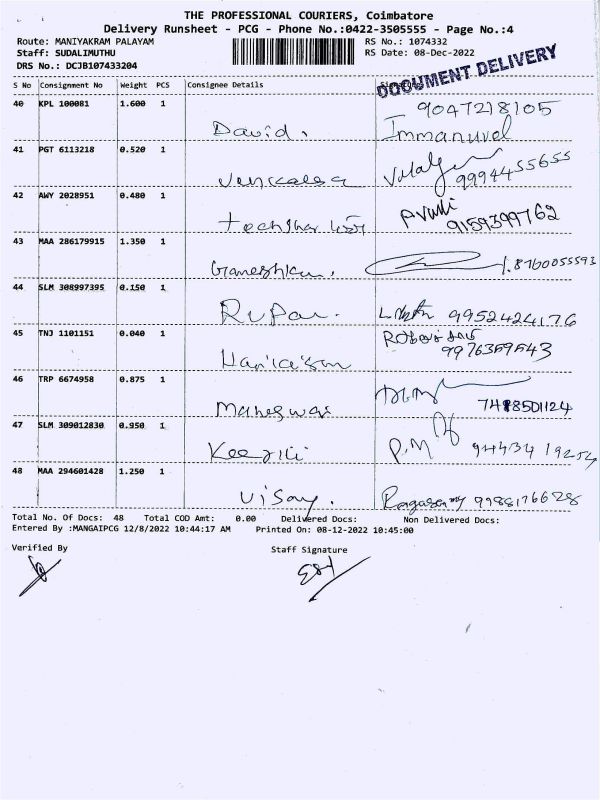 THE PROFESSIONAL COURIERS, Coimbatore
Delivery Runsheet - PCG - Phone No.:0422-3505555 - Page No.:4
Route: MANIYAKRAM PALAYAM RS No.: 1074332
Staff: SUDALIMUTHU RS Date: 08-Dec-2022
DRS No.: DCJB107433204
DOCUMENT DELIVERY
S No Consignment No Weight PCS Consignee Details
40 KPL 100081 1.600 1 9047218105
David. Immanuvel
41 PGT 6113218 0.520 1
9994455655
42 AWY 2028951 0.480 1
9159399762
43 MAA 286179915 1.350 1
Ganeshku. 8760055593
44 SLM 308997395 0.150 1
Rupau. 9952424176
45 TNJ 1101151 0.040 1
9976359543
46 TRP 6674958 0.875 1
Maheswar 7418501124
47 SLM 309012830 0.950 1
P.M
48 MAA 294601428 1.250 1
Ragasamy 9988176628
Total No. Of Docs: 48 Total COD Amt: 0.00 Delivered Docs: Non Delivered Docs:
Entered By :MANGAIPCG 12/8/2022 10:44:17 AM Printed On: 08-12-2022 10:45:00
Verified By Staff Signature